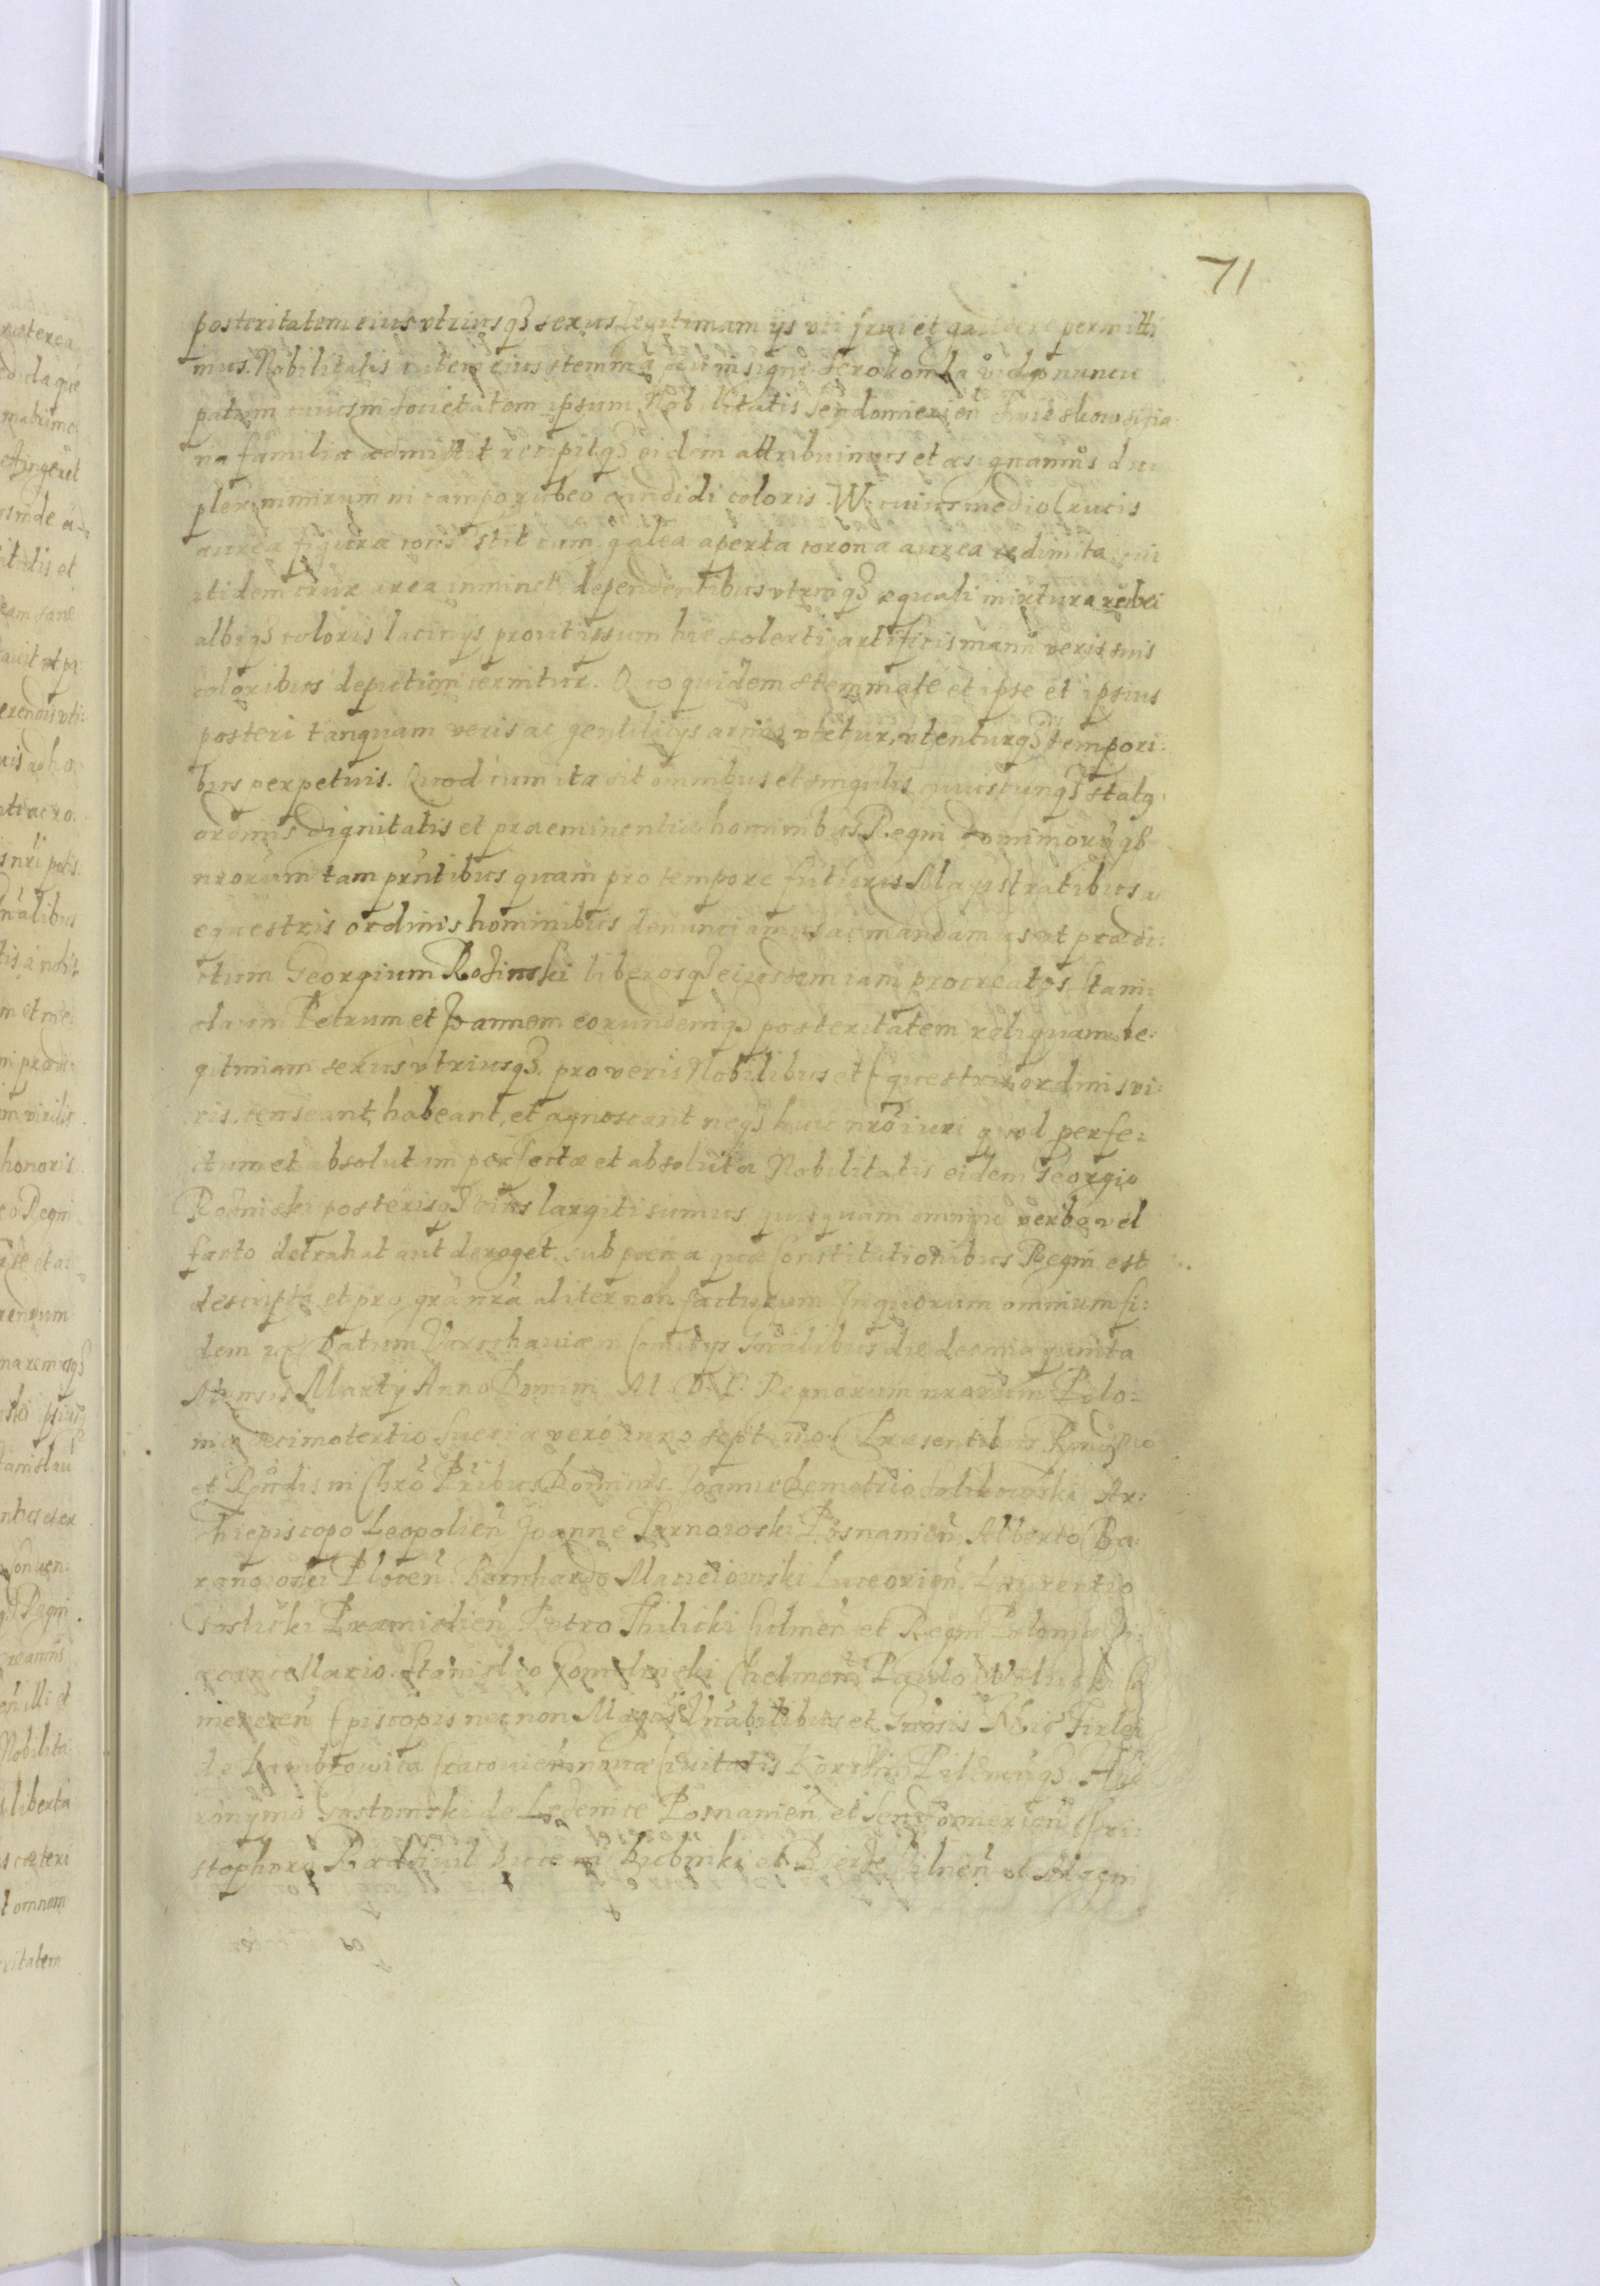 71
posteritatem eius vtriusq3 sexus legitimam ijs vti frui et gaudere permitti:
mus. Nobilitatis autem eius stemma seu insigne Serokomla vulgo nuncu
patum cuius in societatem ipsum Nobilitatis Sendomirien
na familia admittit recipitq3 eidem attribuimus et assignamus du
plex nimirum in campo rubeo candidi coloris W. cuius medio Crucis
aurea figura cum galea aperta corona aurea redimita cui
itidem crux aurea imminet dependentibus vtrinq3 equali mixtura rubei
albiq3 coloris lacinijs prout ipsum hic solerti artificis manu veris suis
coloribus depictum cernitur. Quo quidem stemmate et ipse et ipsius
posteri tanquam veris ac gentilicijs armis vtetur, vtenturq3 tempori:
bus perpetuis. Quod cum ita sit omnibus et singulis cuiuscunq3 status
ordinis dignitatis et praeminentiae hominibus Regni dominiorūq3
nrorum tam prntibus quam pro tempore futuris Magistratibus ac
equestris ordinis hominibus denunciamus ac mandamus vt praedi:
ctum Georgium Rosinski liberosq3 eiusdem iam procreatos Stani:
slaum Petrum et Joannem eorundemq3 posteritatem reliquam le:
gitimam sexus vtriusq3 pro veris Nobilibus et Equestris ordinis vi:
ris censeant, habeant, et agnoscant neq3 huic nrō iuri quod perfe:
ctum et absolutum perfectae et absolutae Nobilitatis eidem Georgio
Rosinski posterisq3 eius largiti sumus quisquam omnino verbo vel
facto detrahat aut deroget. sub poena quae Constitutionibus Regni est
descripta et pro grā nrā aliter non facturum In quorum omnium fi:
dem Datum Varschauiae in Comitijs Gnalibus die decima quinta
Mensis Martij Anno Domini M. D. C. Regnorum nrorum Polo:
niae decimotertio Sueciae vero anno septimo. Praesentibus
et Rndis in Chrō Pribus Dominis Joanne Demetrio Solikowski Ar:
chiepiscopo Leopolien Joanne Tarnowski Posnanien Alberto Ba:
ranowski Plocen Bernhardo Macieiowski Luceorien Laurentio
Goslicki Premislien Petro Thilicki Culmen et Regni Poloniae Vi:
cecancellario. Stanislao Gomolinski Chelmen Paulo Wolucki Ca
meneren Episcopis nec non Magcis Vnabilibus et Gnōsis Firlei
de Dambrowica Cracouien nouae Ciuitatis Korczin
ronymo Gostomski de Ledenice Posnanien et Sendomirien Chri:
stophoro Radziuil Duce in Dubinki et Birże Vilnen